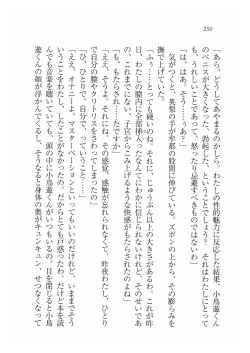 250
「あら、どうしてあやまるのかしら。わたしの性的魅力に反応した結果、小鳥遊くん
のペニスが大きくなった、勃起した、ということでしょう？　それはわたしにとって
も、うれしいことであって、怒ったり忌避すべきものではないわ」
「は、はぁ、そう……ですか？」
気がつくと、英梨の手が冬都の股間に伸びている。ズボンの上から、その膨らみを
撫で上げていた。
「ふぅ……とっても硬いのね。それに、じゅうぶん以上の大きさがあるわ。これが昨
日、わたしの膣に全部挿入したなんてにわかに信じられないけれど、そのせいであ
の、これまでにない、子宮からこみ上げるような快感がもたらされたのよね」
「も、もたらされ……たんですか」
「ええ、そうよ。それにね、その感覚、感触が忘れられなくて、昨夜わたし、ひとり
で自分の膣やクリトリスをさわってしまったの」
「ひ、ひとりで、自分で、って……」
「ええ、オナニーよ。マスターベーションといってもいいのだけれど、いままでそう
いうことをわたし、したことがなかったの。だからとても戸惑ったわ。だけど本を読
んでも音楽を聴いていても、頭の中に小鳥遊くんがいつもいるの。目を閉じると小鳥
遊くんの顔が浮かんでくるし、そうなると身体の奥がキュンキュン、せつなくなって